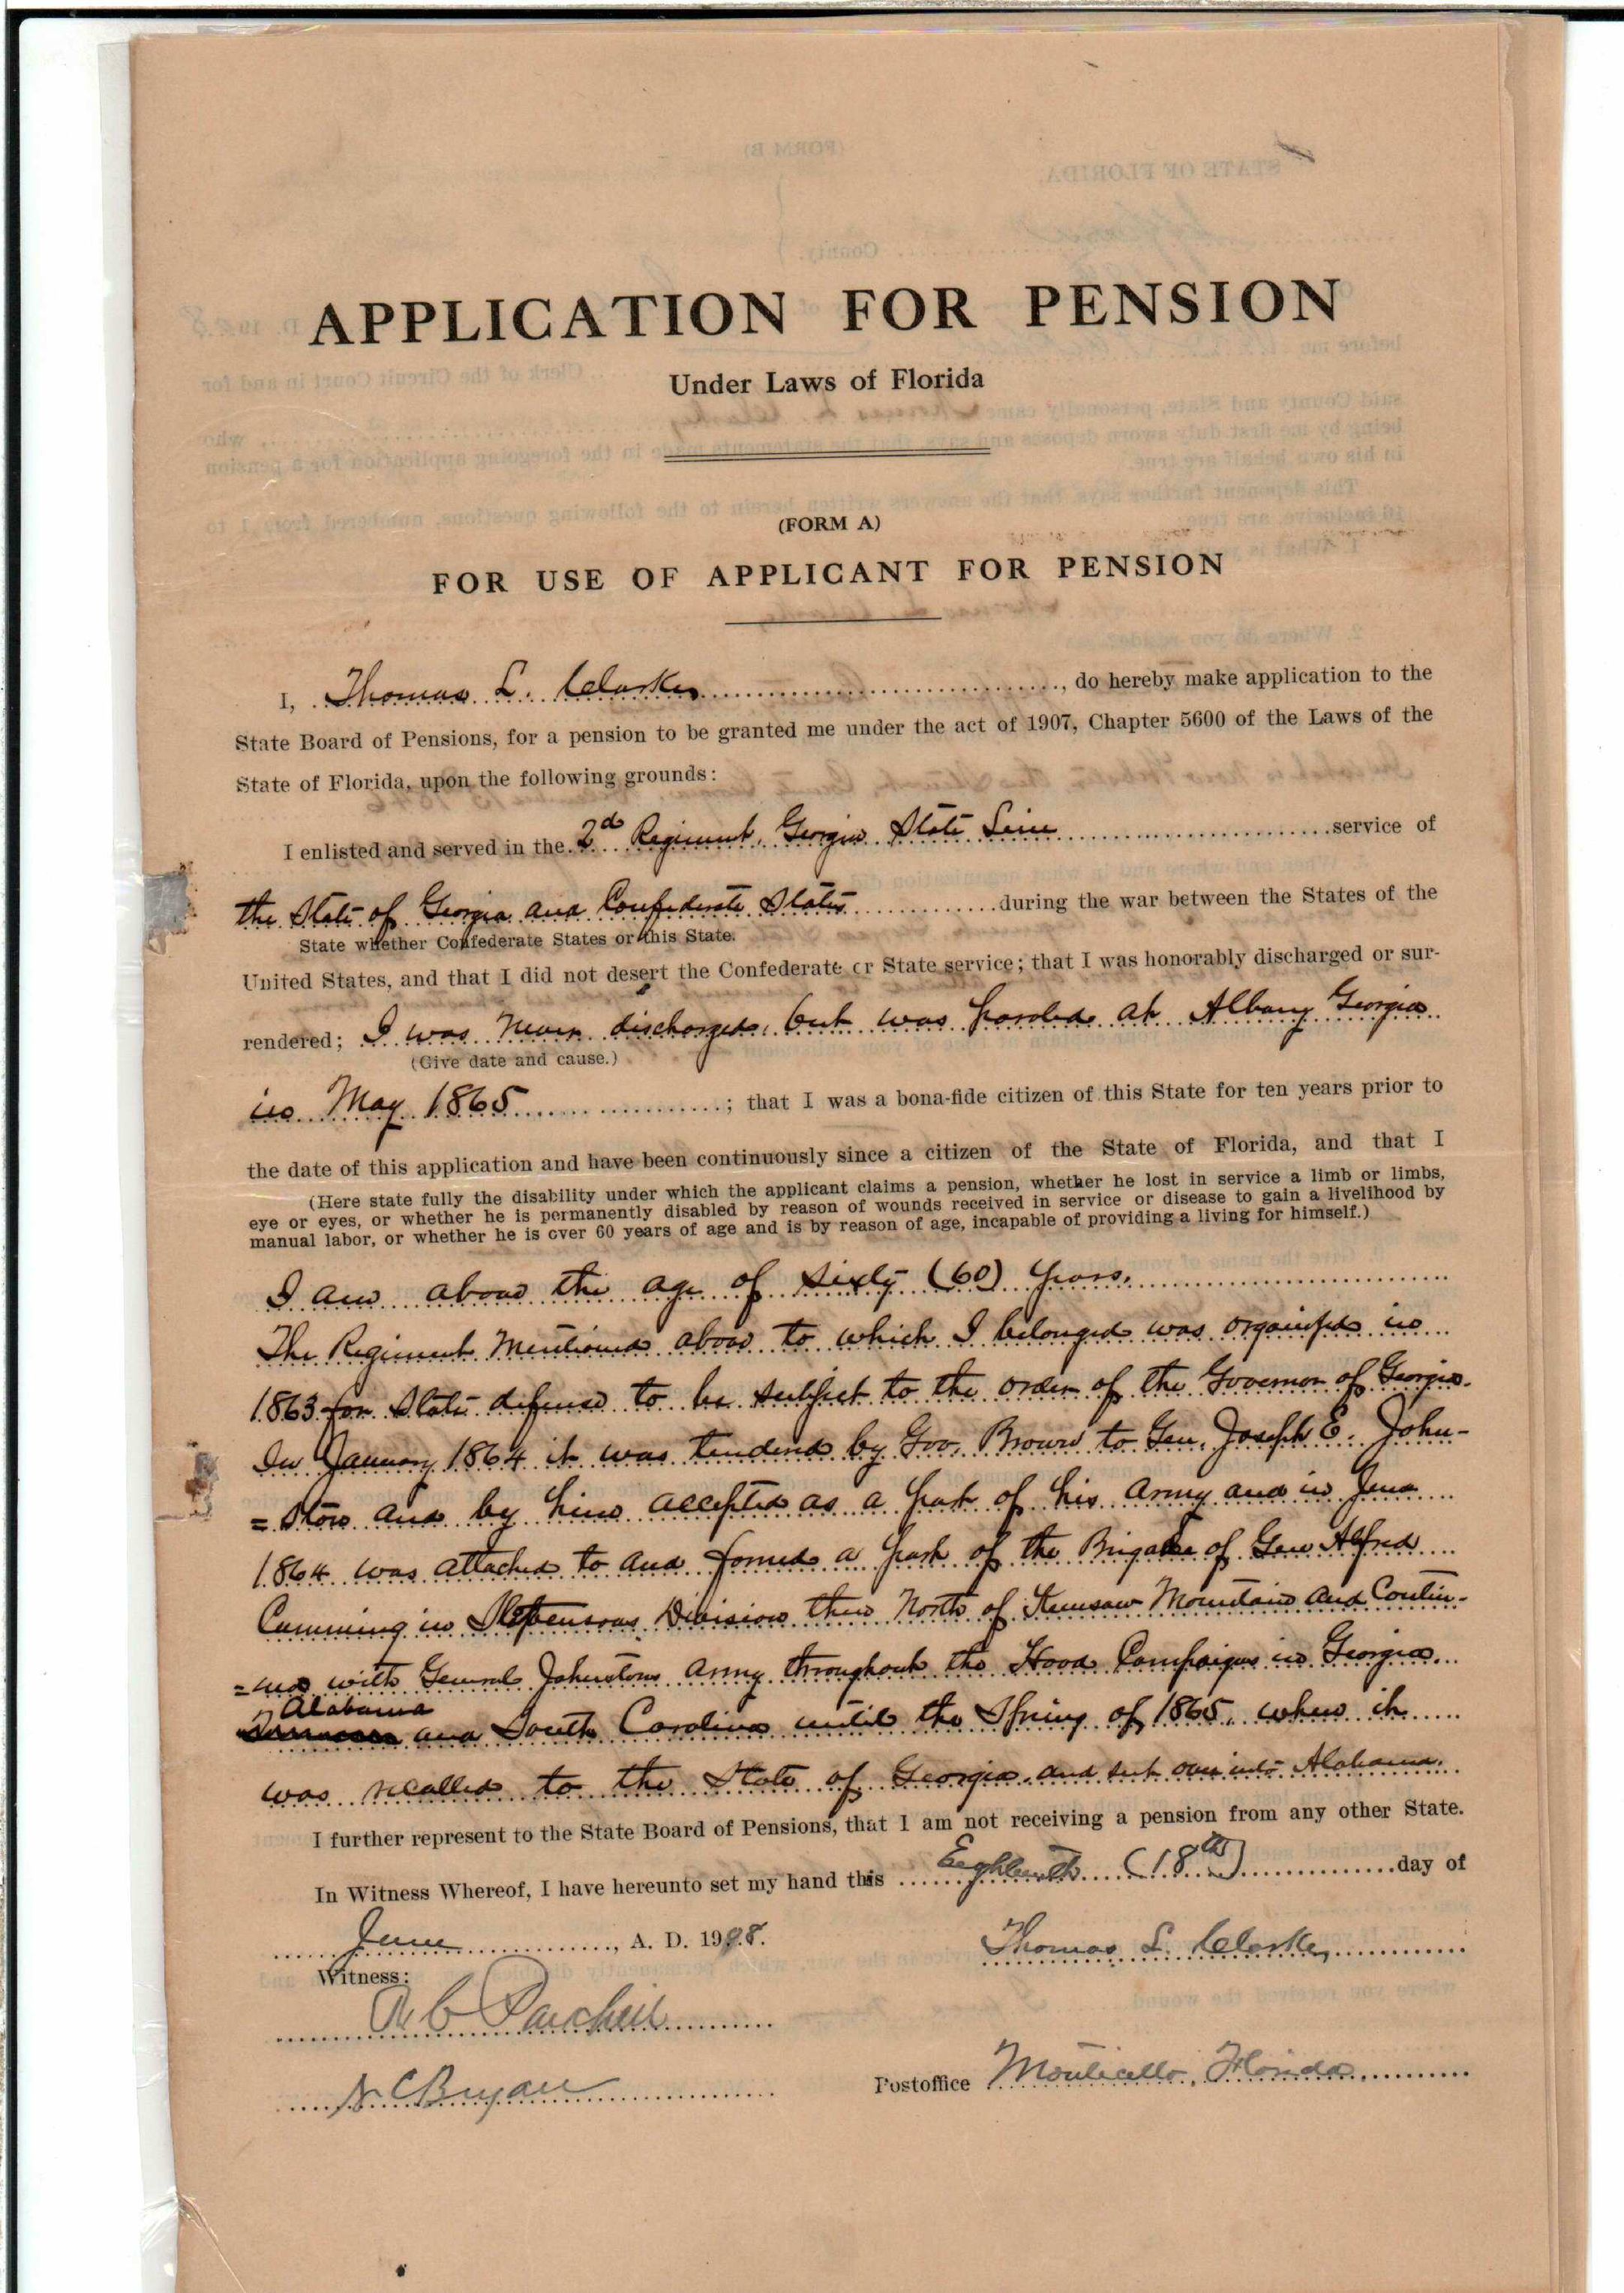 APPLICATION FOR PENSION
Under Laws of Florida
(FORM A)
FOR USE OF APPLICANT FOR PENSION
I, Thomas L. Clarke, do hereby make application to the
State Board of Pensions, for a pension to be granted me under the act of 1907, Chapter 5600 of the Laws of the
State of Florida, upon the following grounds:
I enlisted and served in the 2d Regiment, Georgia State Line service of
the State of Georgia and Confederate States during the war between the States of the
State whether Confederate States or this State.
United States, and that I did not desert the Confederate or State service; that I was honorably discharged or sur-
rendered; I was never discharged, but was paroled at Albany Georgia
(Give date and cause.)
in May 1865; that I was a bona-fide citizen of this State for ten years prior to
the date of this application and have been continuously since a citizen of the State of Florida, and that I
(Here state fully the disability under which the applicant claims a pension, whether he lost in service a limb or limbs,
eye or eyes, or whether he is permanently disabled by reason of wounds received in service or disease to gain a livelihood by
manual labor, or whether he is over 60 years of age and is by reason of age, incapable of providing a living for himself.)
I am above the age of sixty (60) years.
The Regiment mentioned above to which I belonged was organized in
1863 for State defense to be subject to the order of the Governor of Georgia.
In January 1864 it was tendered by Gov. Brown to Gen. Joseph E. John-
=ston and by him accepted as a part of his Army and in June
1864 was attached to and formed a part of the Brigade of Gen Alfred
Cumming in Stevensons Division then North of Kenesaw Mountain and Contin-
=ued with General Johnstons Army throughout the Hood Campaigns in Georgia
Alabama
Tennessee and South Carolina until the Spring of 1865, when it
was recalled to the State of Georgia and sent over into Alabama.
I further represent to the State Board of Pensions, that I am not receiving a pension from any other State.
In Witness Whereof, I have hereunto set my hand this Eighteenth (18th) day of
June, A. D. 1908.
Thomas L. Clarke,
Witness:
N C Bryan
Postoffice Monticello, Florida